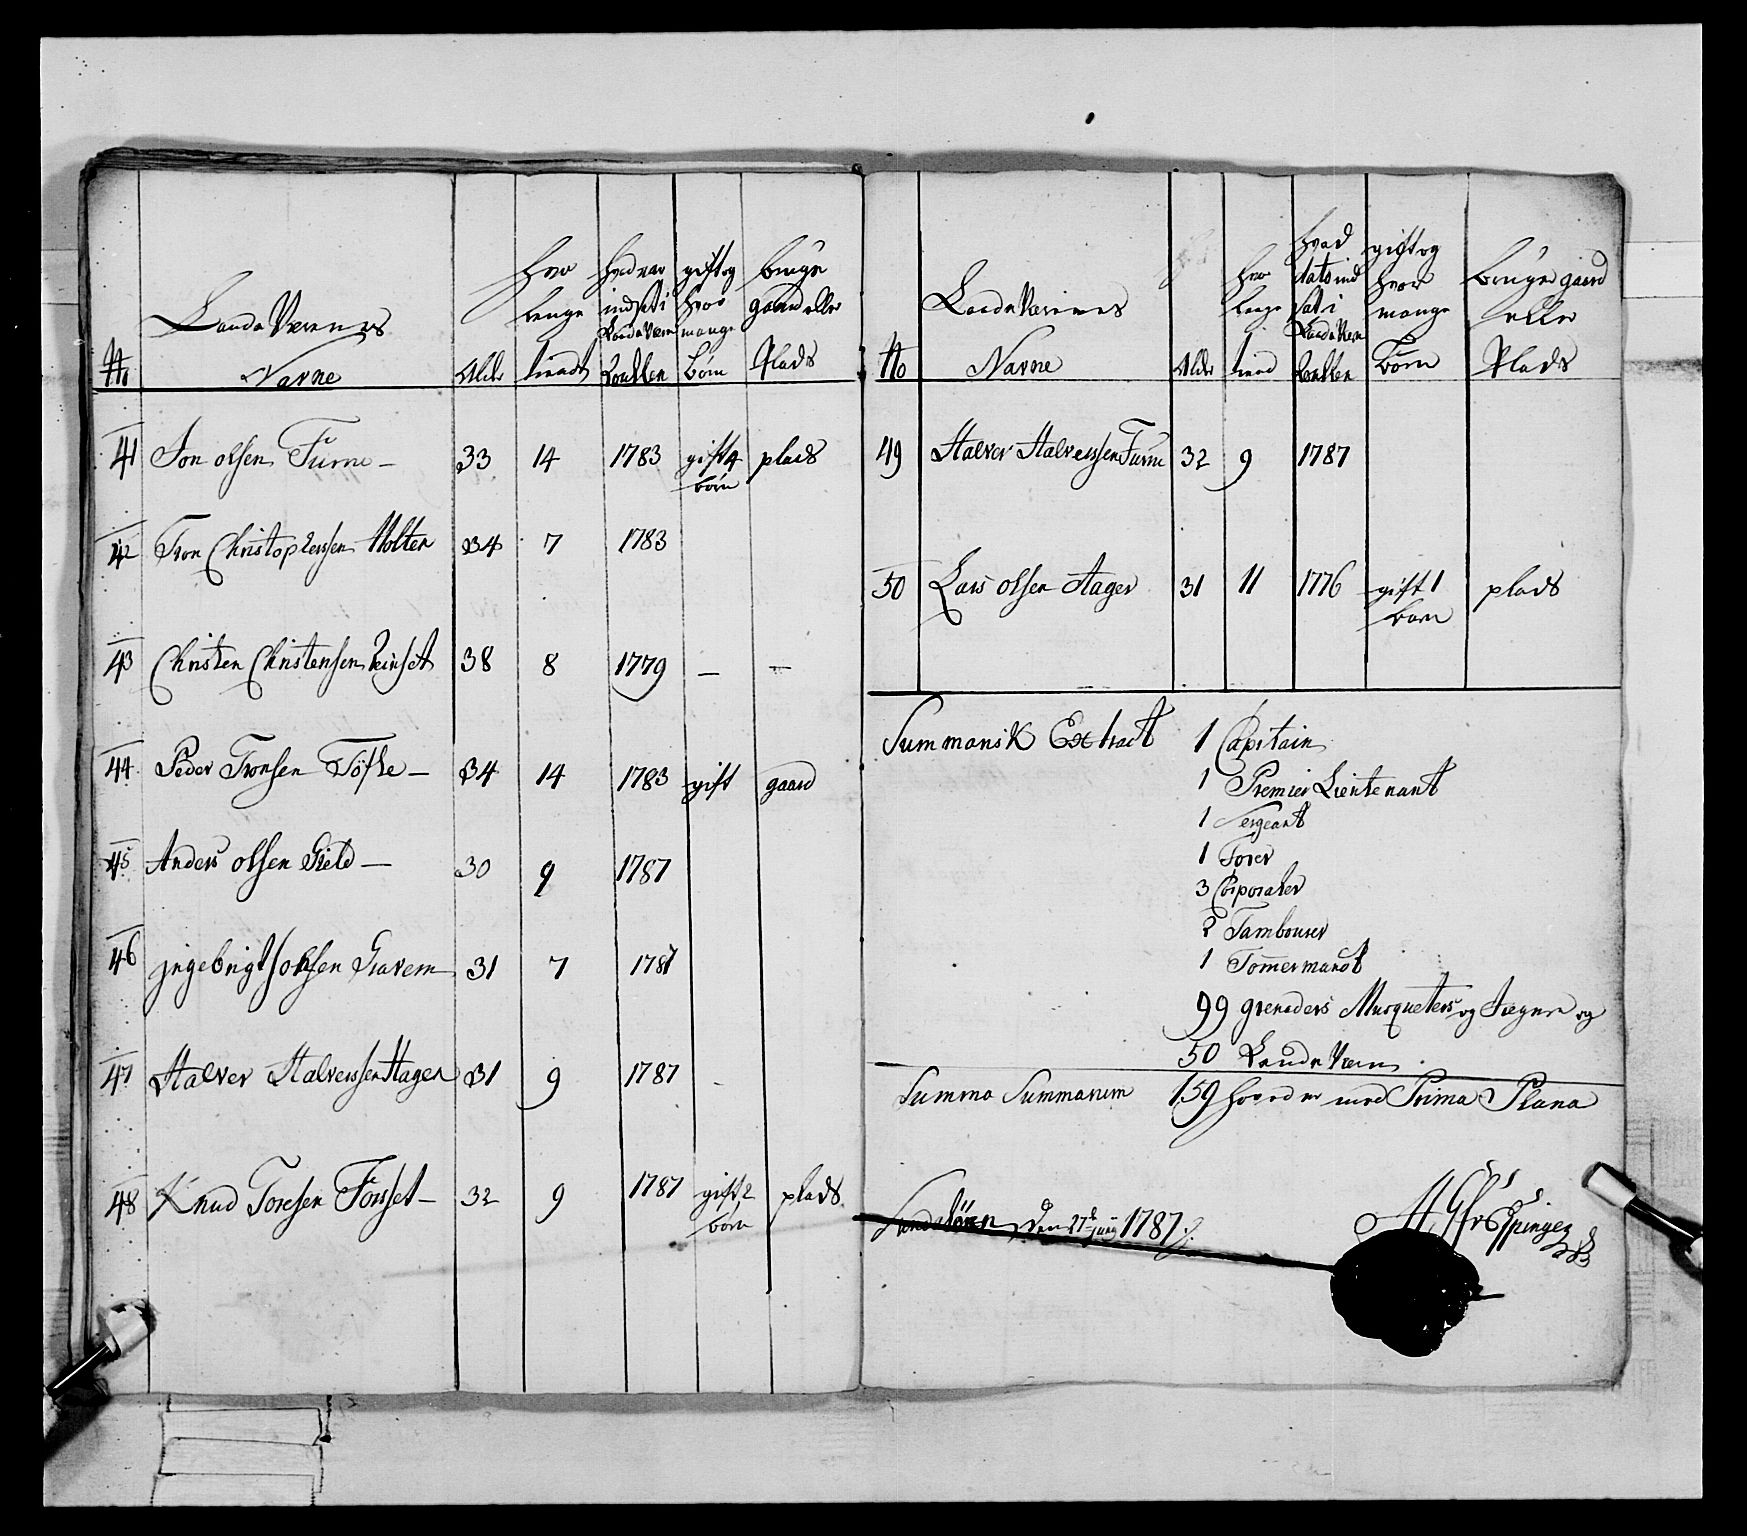 No
Landa Værnes
Navne
Alder
hvor
lenge
tient
hvad aar
indsat i
Landa Væn
Roullen
gift og
hvor
mange
børn
bruger
gaard eller
Plads
41 Jon olsen Furue — 33 14 1783 gift 4 plads
børn
42 Tron Christophersen Holten 34 7 1783
43 Christen Christensen Reinset 38 8 1779 — —
44 Peder Tronsen Töfte — 34 14 1783 gift gaard
45 Anders olsen Gield — 30 9 1787
46 jngebrigt Johsen Gravem 31 7 1787
47 Halver Halverssen Hagen 31 9 1787
48 Knud Toresen Forsset — 32 9 1787 gift 2 plads
børn
No
Landa Værnes
Navne
Alder
hvor
lenge
tiend
hvad
dato ind
sat i
Landa Væn
Roullen
gift og
hvor
mange
børn
bruger gaard
eller
Plads
49 Halver Halverssen Furue 32 9 1787
50 Lars olsen Hagen 31 11 1776 gift 1 plads
barn
Summarisk Extract 1 Capitain
1 Premier Lieutenant
1 Sergeant
1 Forer
3 Corporaler
2 Tambourer
1 Tömermand
99 grenaders Musqueters og Jægere og
50 Landa Værn
Summa Summarum 159 hoveder med Prima Plana
den 27de juny 1787